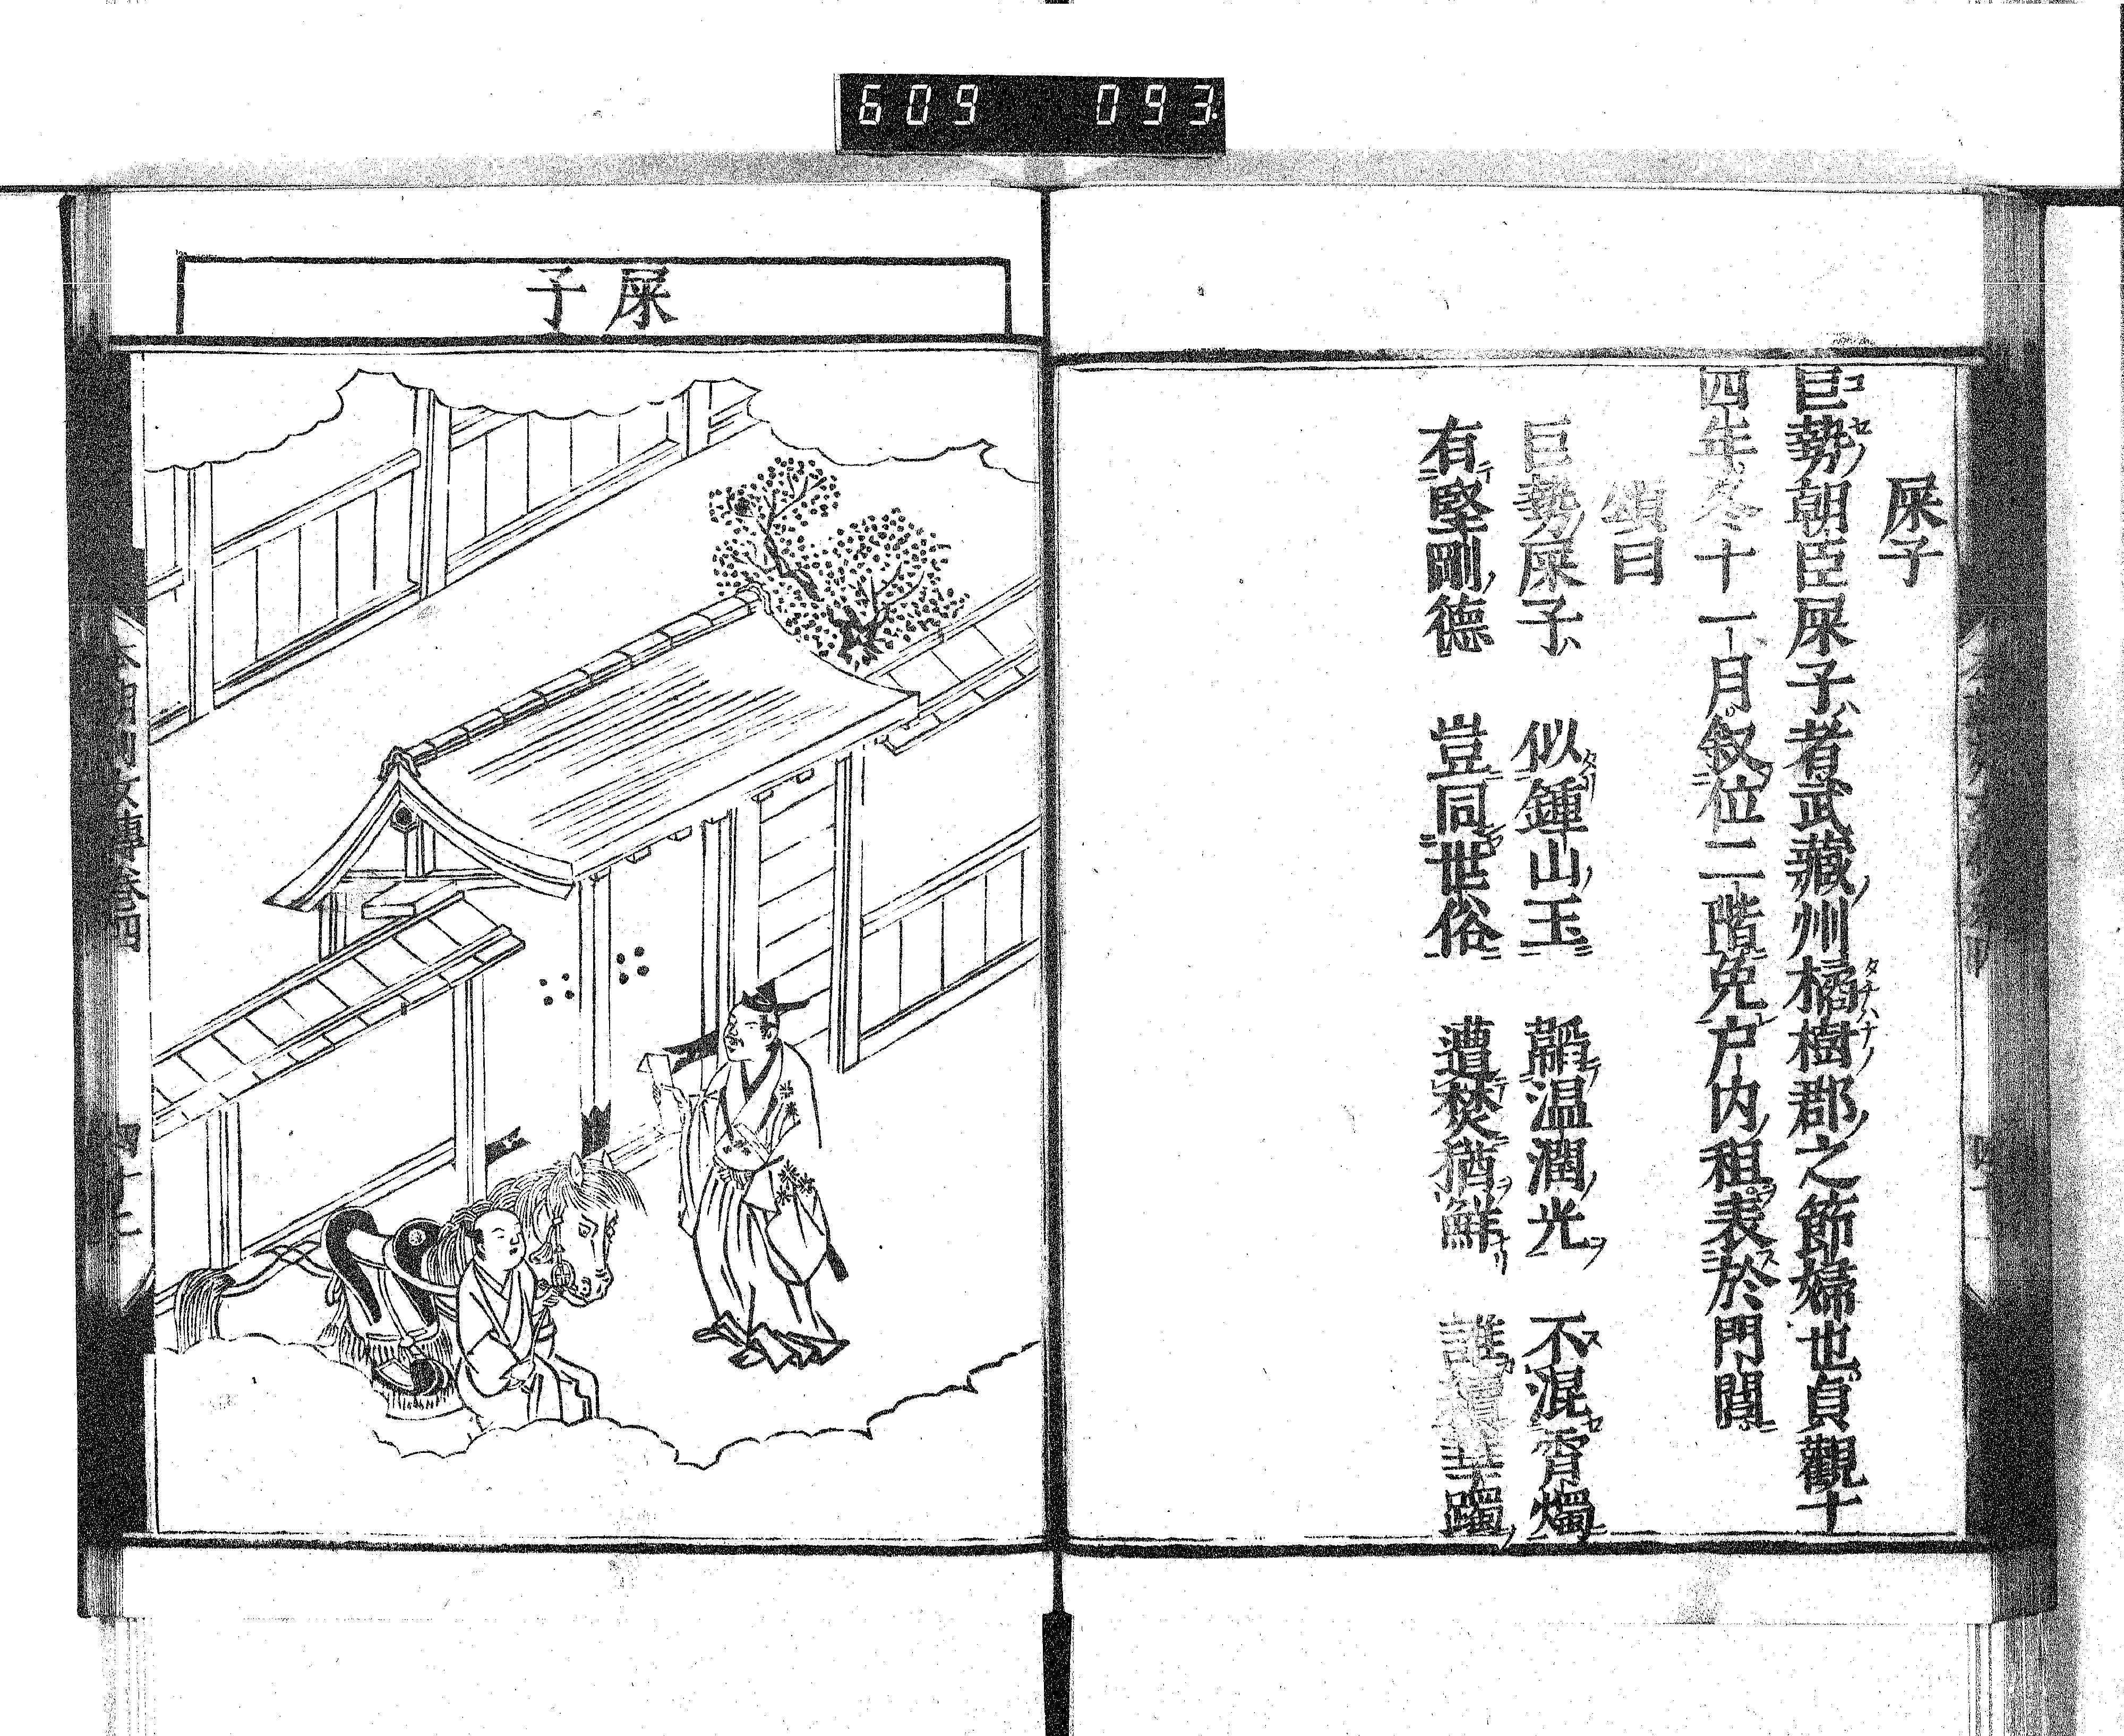 609 093
屎子
巨勢朝臣屎子者武藏州橘樹郡之節婦也貞觀十
四年冬十一月叙位二階免戸内租表於門閭
頌曰
巨勢屎子 似鍾山玉 韞温潤光 不混宵燭
有堅剛德 豈同世俗 遭焚猶鮮 誰
躅
屎子